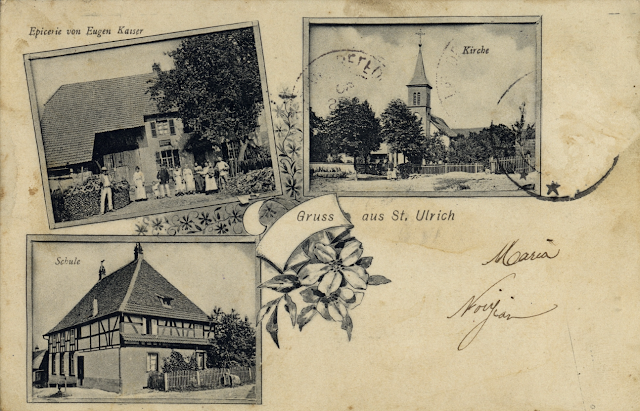 Epicerie von Eugen Kaiser
Kirche
Gruss aus St. Ulrich
Schule
Maria